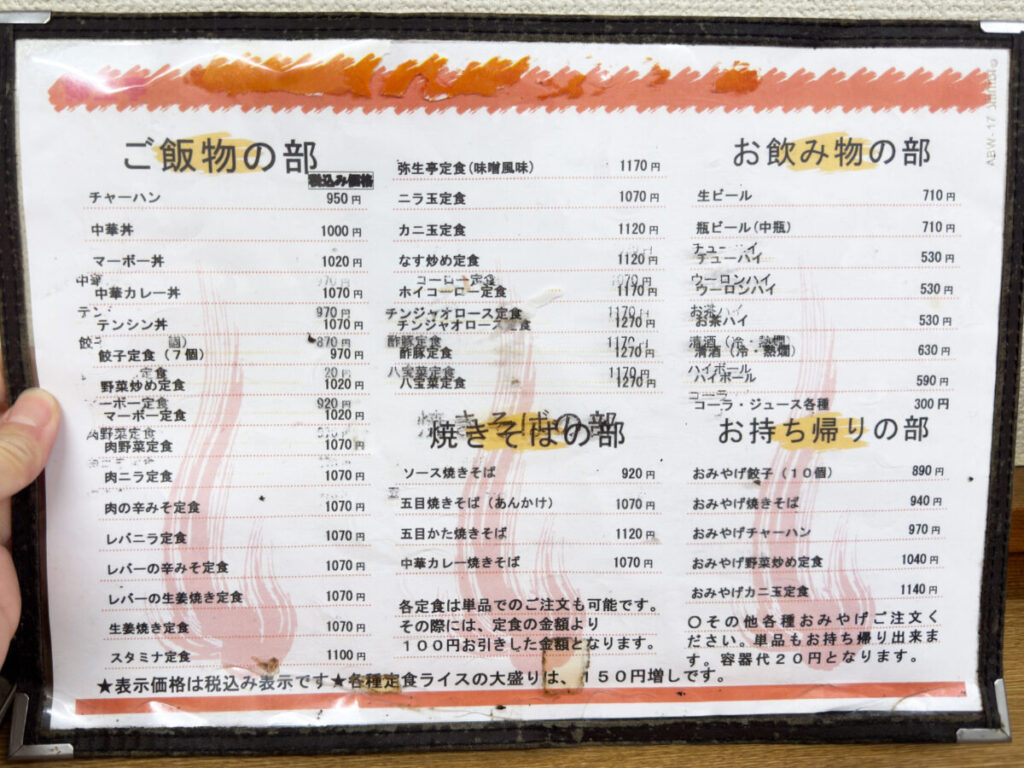 ご飯物の部
税込み価格
チャーハン 950円
中華丼 1000円
マーボー丼 1020円
中華カレー丼 1070円
テンシン丼 1070円
餃子定食(7個) 970円
野菜炒め定食 1020円
マーボー定食 1020円
肉野菜定食 1070円
肉ニラ定食 1070円
肉の辛みそ定食 1070円
レバニラ定食 1070円
レバーの辛みそ定食 1070円
レバーの生姜焼き定食 1070円
生姜焼き定食 1070円
スタミナ定食 1100円
弥生亭定食(味噌風味) 1170円
ニラ玉定食 1070円
カニ玉定食 1120円
なす炒め定食 1120円
ホイコーロー定食 1170円
チンジャオロース定食 1270円
酢豚定食 1270円
八宝菜定食 1270円
焼きそばの部
ソース焼きそば 920円
五目焼きそば(あんかけ) 1070円
五目かた焼きそば 1120円
中華カレー焼きそば 1070円
各定食は単品でのご注文も可能です。
その際には、定食の金額より
100円お引きした金額となります。
お飲み物の部
生ビール 710円
瓶ビール(中瓶) 710円
チューハイ 530円
ウーロンハイ 530円
お茶ハイ 530円
清酒(冷・熱燗) 630円
ハイボール 590円
コーラ・ジュース各種 300円
お持ち帰りの部
おみやげ餃子(10個) 890円
おみやげ焼きそば 940円
おみやげチャーハン 970円
おみやげ野菜炒め定食 1040円
おみやげカニ玉定食 1140円
〇その他各種おみやげご注文く
ださい。単品もお持ち帰り出来ま
す。容器代20円となります。
★表示価格は税込み表示です★各種定食ライスの大盛りは、150円増しです。
ABW-17